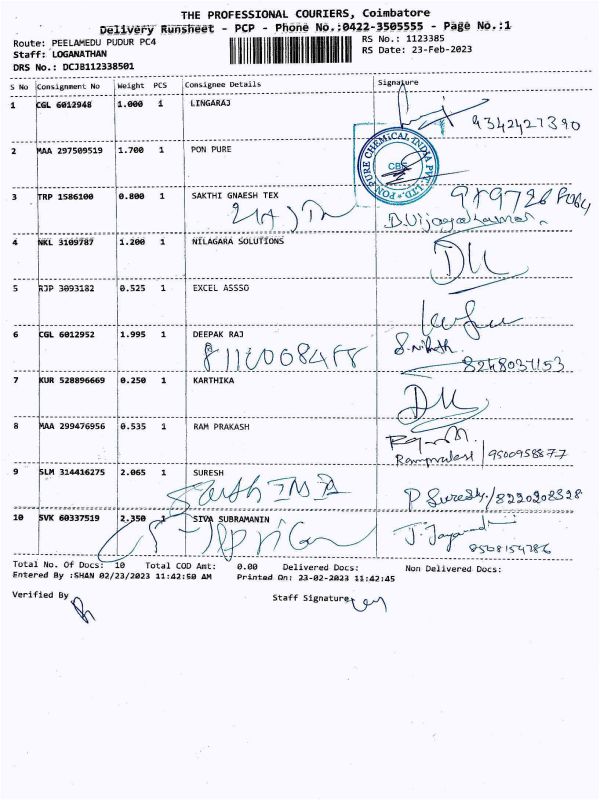 THE PROFESSIONAL COURIERS, Coimbatore
Delivery Runsheet - PCP - Phone No.:0422-3505555 - Page No.:1
Route: PEELAMEDU PUDUR PC4
RS No.: 1123385
Staff: LOGANATHAN
RS Date: 23-Feb-2023
DRS No.: DCJB112338501
S No Consignment No Weight PCS Consignee Details Signature
1 CGL 6012948 1.000 1 LINGARAJ
9342427390
2 MAA 297509519 1.700 1 PON PURE
PON PURE CHEMICAL INDIA PVT. LTD
CBE
3 TRP 1586100 0.800 1 SAKTHI GNAESH TEX
D.Vijayakumar
4 NKL 3109787 1.200 1 NILAGARA SOLUTIONS
5 RJP 3093182 0.525 1 EXCEL ASSSO
6 CGL 6012952 1.995 1 DEEPAK RAJ
8248037153
7 KUR 528896669 0.250 1 KARTHIKA
8 MAA 299476956 0.535 1 RAM PRAKASH
9500958877
9 SLM 314416275 2.065 1 SURESH
P Suresh/8220208328
10 SVK 60337519 2.350 1 SIVA SUBRAMANIN
8508154786
Total No. Of Docs: 10 Total COD Amt: 0.00 Delivered Docs: Non Delivered Docs:
Entered By :SHAN 02/23/2023 11:42:50 AM Printed On: 23-02-2023 11:42:45
Verified By
Staff Signature